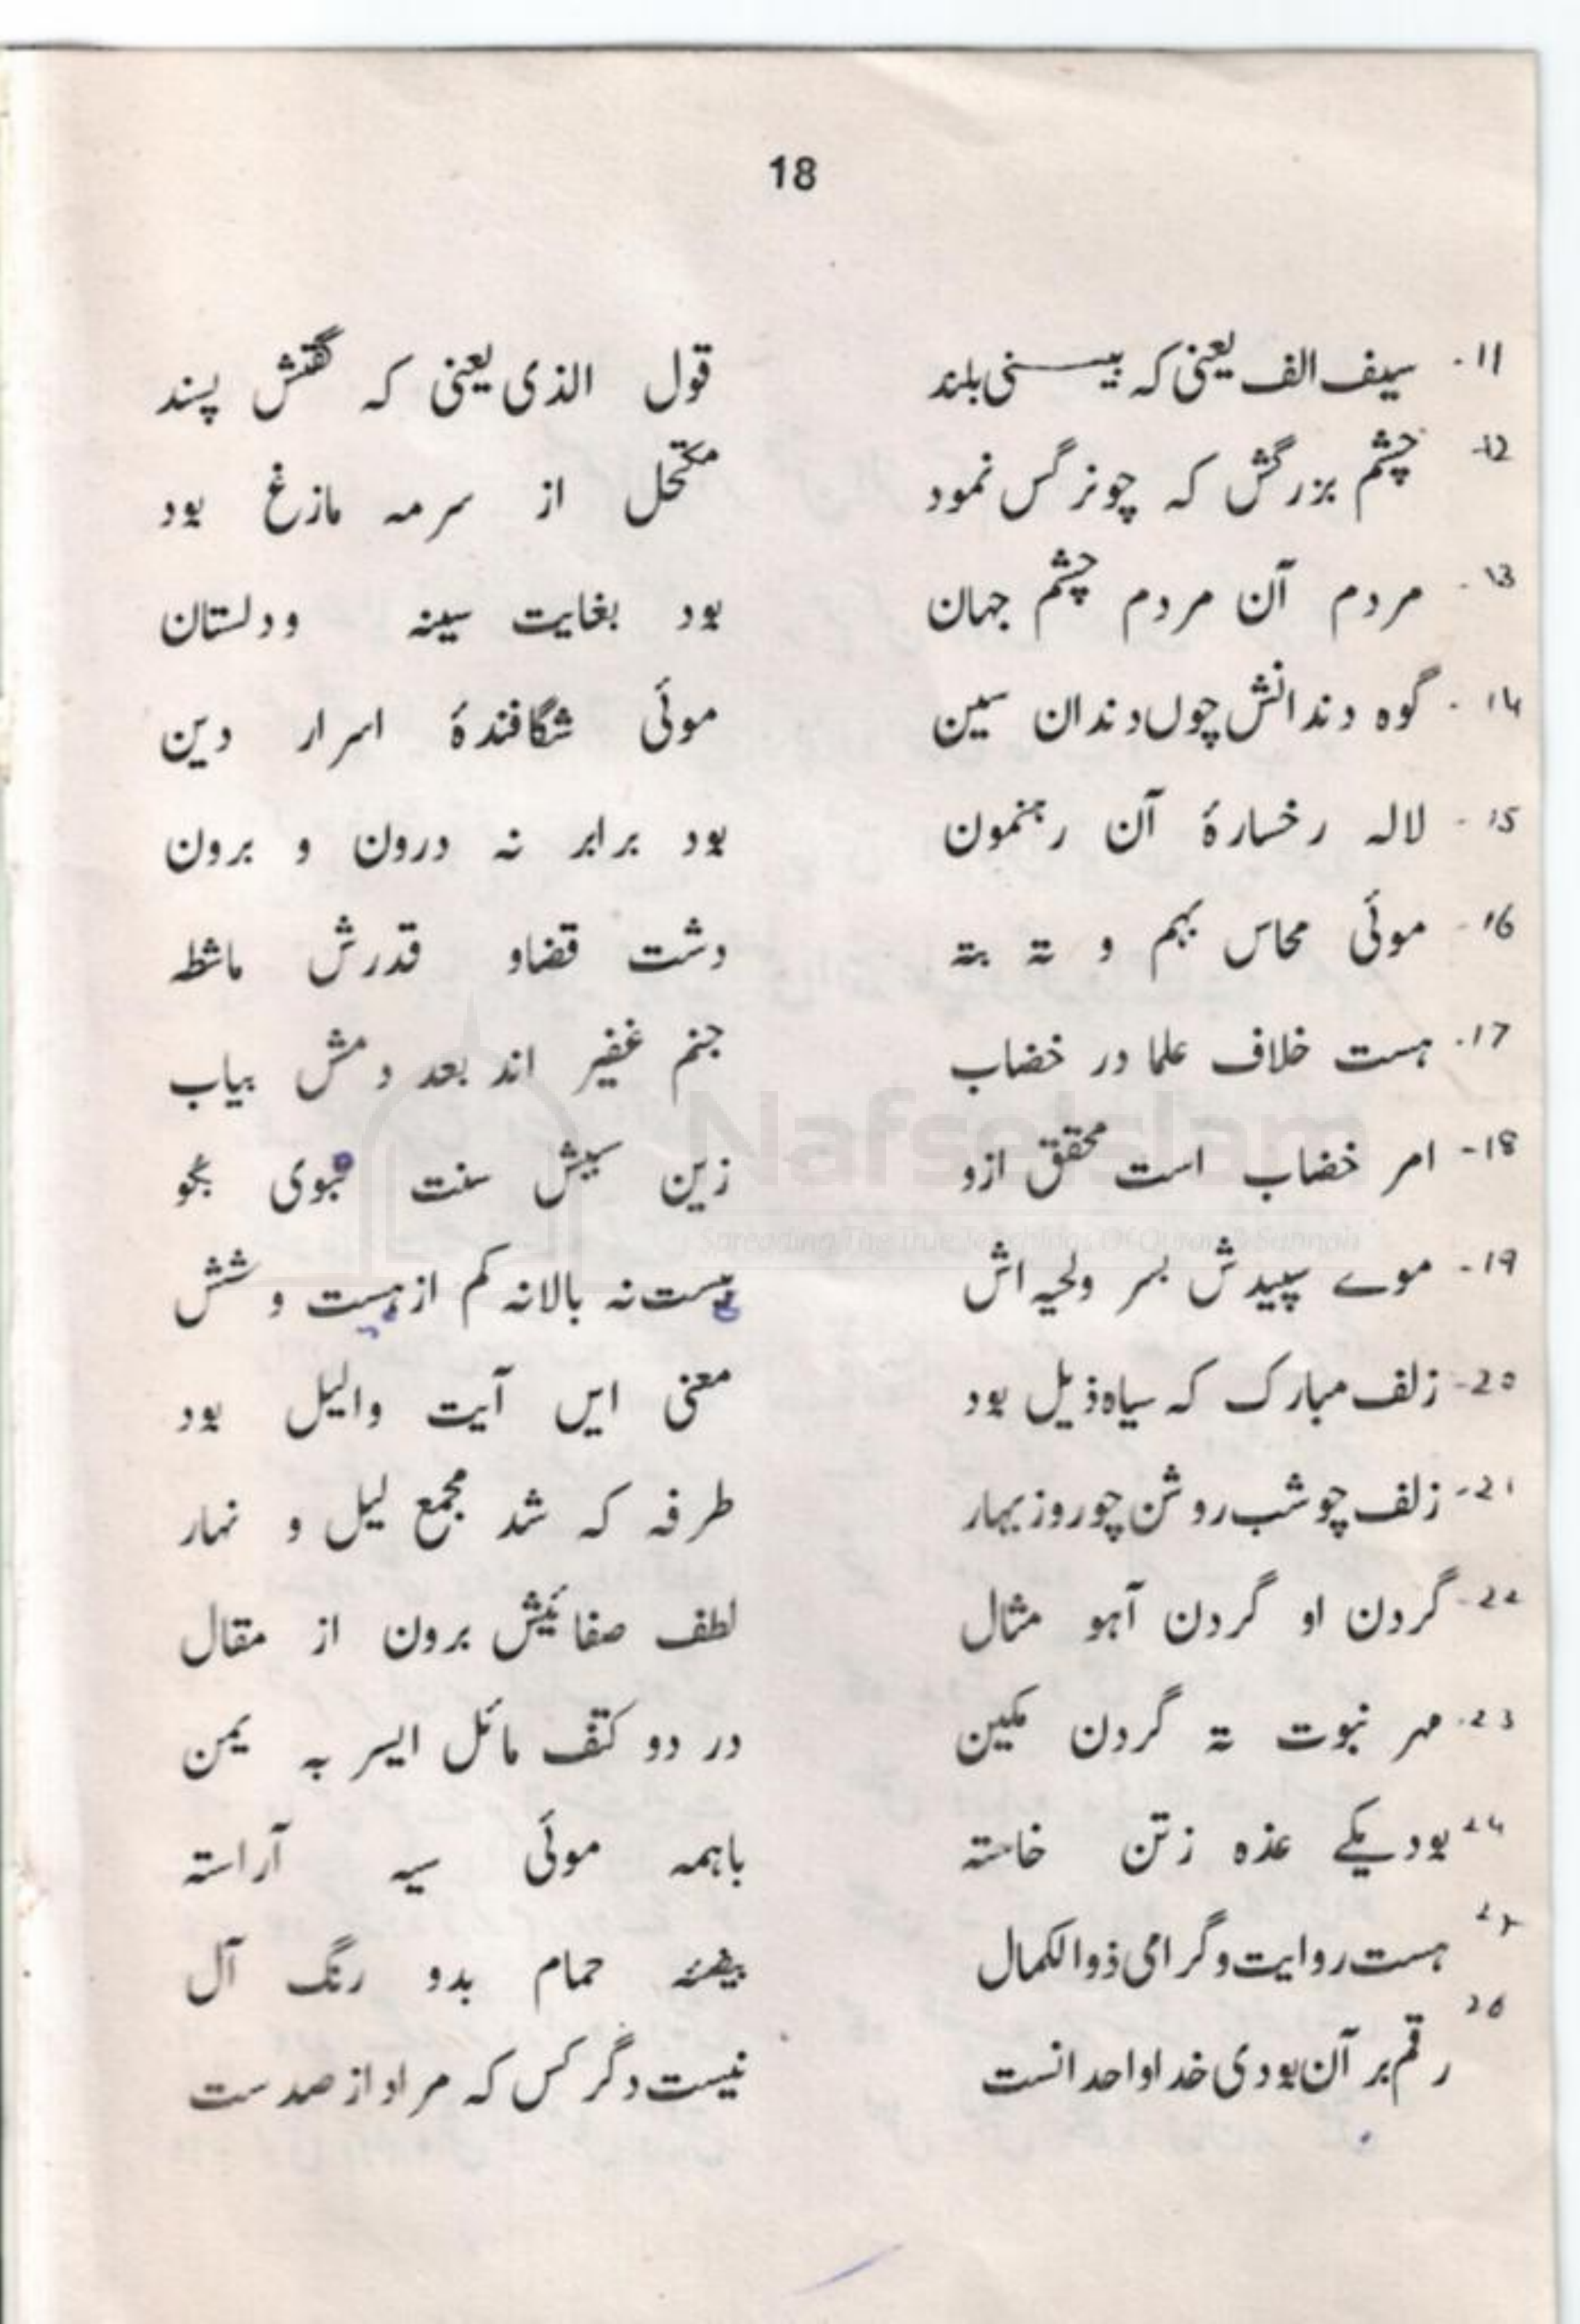 18
11- سیف الف یعنی کہ بینی بلند قول الذی یعنی کہ گفتش پسند
12- چشم بزرگش کہ چو نرگس نمود مکتحل از سرمہ مازغ بود
13- مردم آن مردم چشم جہان بود بغایت سینہ ودلستان
14- گوہ دندانش چوں دندان سین موئی شگافندۂ اسرار دین
15- لالہ رخسارۂ آن رہنمون بود برابر نہ درون و برون
16- موئی محاس بہم و تہ بتہ دشت قضاو قدرش ماشطہ
17- ہست خلاف علما در خضاب جنم غفیر اند بعد دمش بیاب
18- امر خضاب است محقق ازو زین سپش سنت نبوی بجو
19- موے سپیدش بسر ولحیہ اش ہست نہ بالانہ کم از بست و شش
20- زلف مبارک کہ سیاہ ذیل بود معنی ایں آیت والیل بود
21- زلف چو شب روشن چو روز بہار طرفہ کہ شد مجمع لیل و نہار
22- گردن او گردن آہو مثال لطف صفائیش برون از مقال
23- مہر نبوت تہ گردن مکین در دو کتف مائل ایسر بہ یمن
24 بود یکے عذہ زتن خاستہ باہمہ موئی سیہ آراستہ
ہست روایت و گرامی ذوالکمال بیضئہ حمام بدو رنگ آل
26 رقم بر آن بودی خدا واحدانست نیست دگر کس کہ مراد از صدست
NafseIslam
Spreading The True Teachings Of Quran & Sunnah